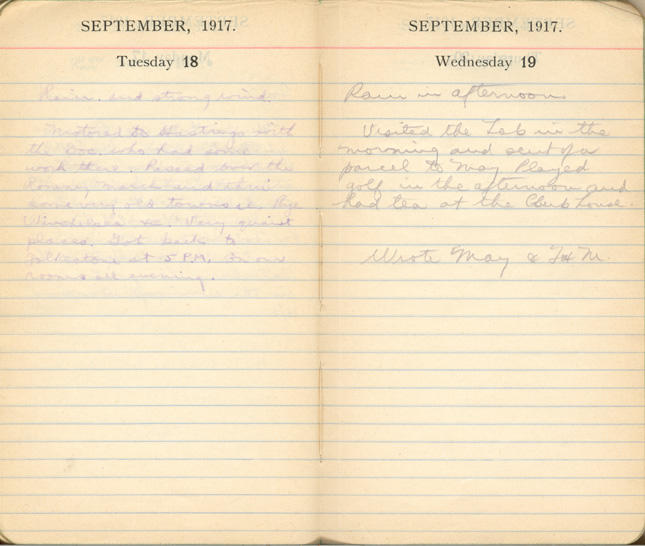 SEPTEMBER, 1917.
Tuesday 18
Rain. and strong wind.
Motored to Hastings with
the Doc. who had some
work there. Passed over the
Romney marsh and thru
some very old towns ie. Rye
Winchelsea &c. Very quaint
places. Got back to
Folkestone at 5 P.M. In our
rooms all evening.
SEPTEMBER, 1917.
Wednesday 19
Rain in afternoon
Visited the Lab in the
morning and sent off a
parcel to May Played
golf in the afternoon and
had tea at the Club house.
Wrote May & F & M.